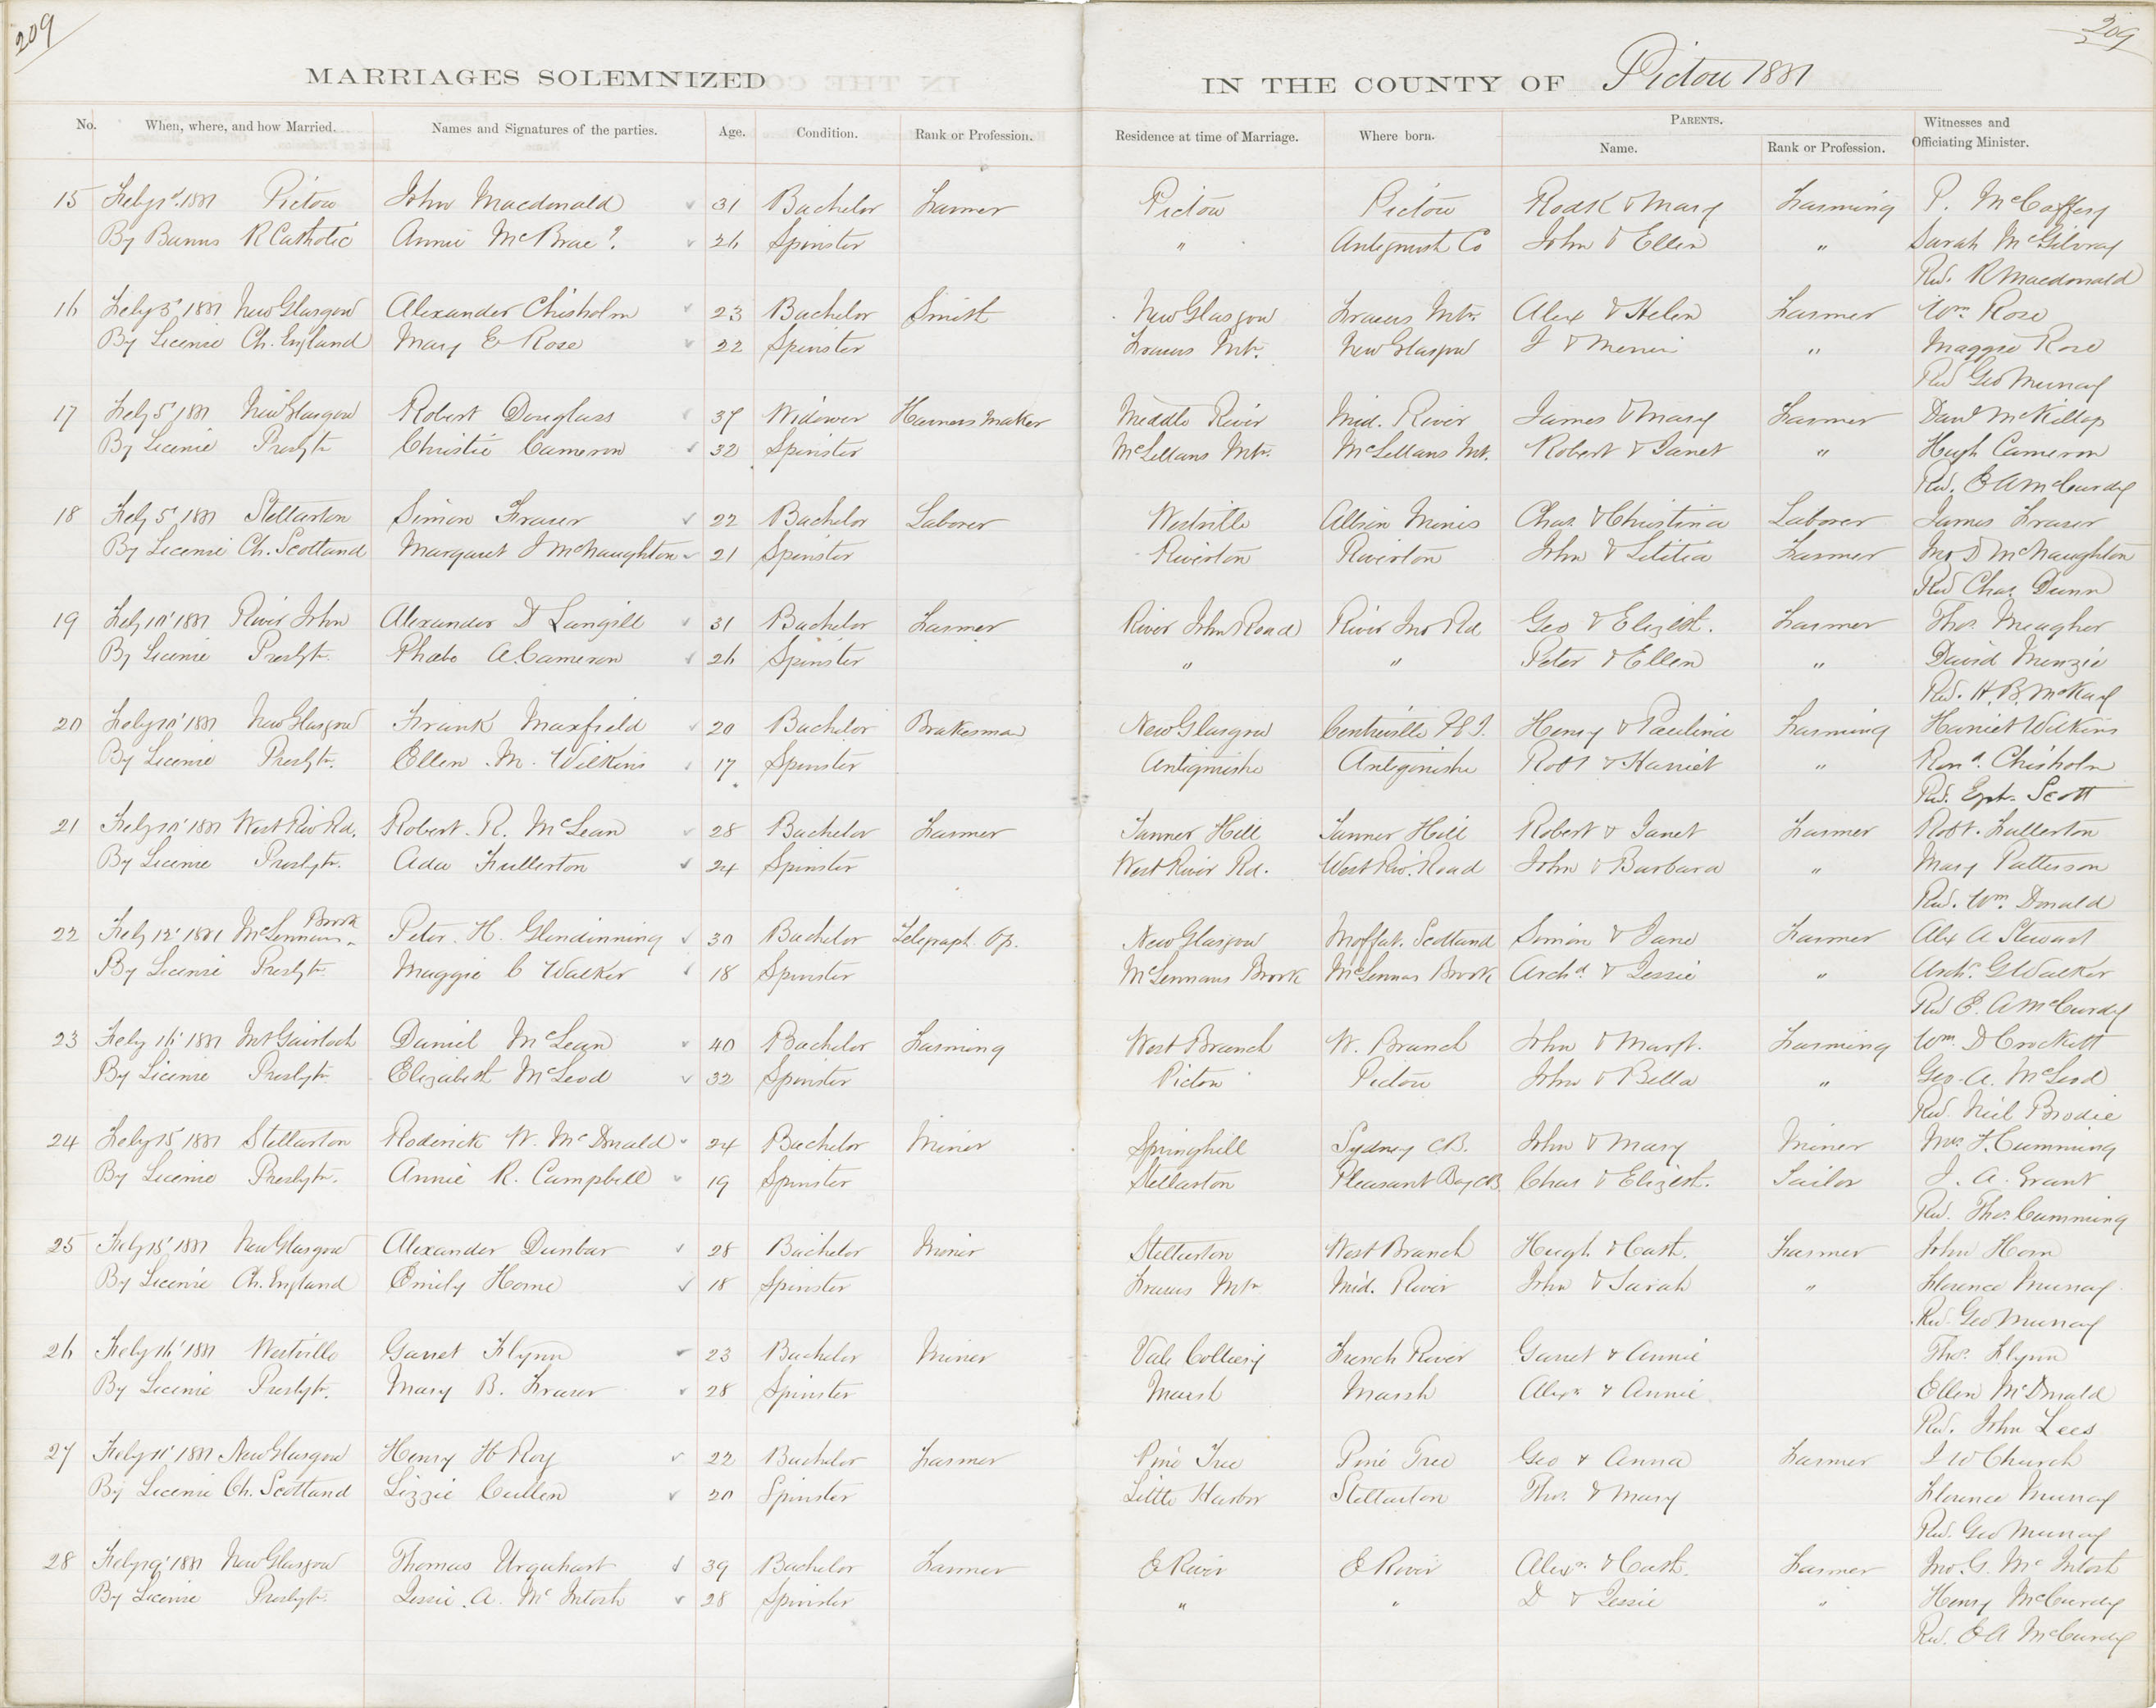 209
209
MARRIAGES SOLEMNIZED IN THE COUNTY OF Pictou 1881
No. When, where, and how Married. Names and Signatures of the parties. Age. Condition. Rank or Profession. Residence at time of Marriage. Where born. PARENTS. Witnesses and Officiating Minister.
Name. Rank or Profession.
15 Feby 1881 Pictou John Macdonald 31 Bachelor Farmer Pictou Pictou Rodk & Mary Farming P. McCaffery
By Banns R Catholic Annie McBrae? 26 Spinster " Antignish Co John & Ellen " Sarah McGilvray
Rev. R Macdonald
16 Feby 3 1881 New Glasgow Alexander Chisholm 23 Bachelor Smith New Glasgow Frasers Mtn. Alex & Helen Farmer Wm. Rose
By License Ch. England Mary E Rose 22 Spinster Frasers Mt. New Glasgow J & " Maggie Rose
Rev Geo Murray
17 Feby 5 1881 New Glasgow Robert Douglass 37 Widower Harness Maker Middle River Mid. River James & Mary Farmer Danl McKillop
By License Presbytn Christie Cameron 32 Spinster McLellans Mtn. McLellans Mt. Robert & Janet " Hugh Cameron
Rev. E A McCurdy
18 Feby 5 1881 Stellarton Simon Fraser 22 Bachelor Laborer Westville Albion Mines Chas. & Christina Laborer James Fraser
By License Ch. Scotland Margaret J McNaughton 21 Spinster Riverton Riverton John & Letitia Farmer Jno D McNaughton
Rev Chas. Dunn
19 Feby 10 1881 River John Alexander D Langill 31 Bachelor Farmer River John Road River Jno Rd Geo & Elizbt. Farmer Thos. Meagher
By License Presbytn. Phebe A. Cameron 26 Spinster " " Peter & Ellen " David Menzie
Rev. H. B. McKay
20 Feby 10 1881 New Glasgow Frank Maxfield 20 Bachelor Brakesman New Glasgow Centreville P.E.I. Henry & Paulina Farming Harriet Wilkins
By License Presbytn. Ellen M. Wilkins 17 Spinster Antigonishe Antigonishe Robt & Harriet " Rond. Chisholm
Rev. Eph. Scott
21 Feby 10 1881 West Riv Rd. Robert. R. McLean 28 Bachelor Farmer Tanner Hill Tanner Hill Robert & Janet Farmer Robt. Fullerton
By License Presbytn. Ada Fullerton 24 Spinster West River Rd. West Riv. Road John & Barbara " Mary Patterson
Rev. Wm. Donald
22 Feby 12 1881 McLennans Brook Peter. H. Glendinning 30 Bachelor Telegraph Op. New Glasgow Moffat. Scotland Simon & Jane Farmer Alex A Stewart
By License Presbytn Maggie C Walker 18 Spinster McLennans Brook McLennas Brook Archd & Jessie " Archd. G Walker
Rev E. A McCurdy
23 Feby 16 1881 Mt Gairloch Daniel McLean 40 Bachelor Farming West Branch W. Branch John & Margt. Farming Wm. D Crockett
By License Presbytn Elizabeth McLeod 32 Spinster Pictou Pictou John & Bella " Geo. A. McLeod
Rev. Neil Brodie
24 Feby 15 1881 Stellarton Roderick W. McDonald 24 Bachelor Miner Springhill Sydney C.B. John & Mary Miner F. Cumming
By License Presbytn. Annie R. Campbell 19 Spinster Stellarton Pleasant Bay CB. Chas & Elizbt. Sailor J. A. Grant
Rev. Thos. Cumming
25 Feby 15 1881 New Glasgow Alexander Dunbar 28 Bachelor Miner Stellarton West Branch Hugh & Cath. Farmer John Horn
By License Ch. England Emily Horne 18 Spinster Frasers Mtn Mid. River John & Sarah " Florence Murray
Rev. Geo Murray
26 Feby 16 1881 Westville Garret Flynn 23 Bachelor Miner Vale Colliery French River Garret & Annie Thos. Flynn
By License Presbytn. Mary B. Fraser 28 Spinster Marsh Marsh Alexr & Annie Ellen McDonald
Rev. John Lees
27 Feby 1881 New Glasgow Henry H Roy 22 Bachelor Farmer Pine Tree Pine Tree Geo & Anna Farmer J W Church
By License Ch. Scotland Lizzie Cullen 20 Spinster Little Harbor Stellarton Thos. & Mary Florence Murray
Rev. Geo Murray
28 Feby 19 1881 New Glasgow Thomas Urquhart 39 Bachelor Farmer E River E River Alexr. & Cath. Farmer Jno. G. McIntosh
By License Presbytn. Jessie. A. McIntosh 28 Spinster " " D & Jessie " Henry McCurdy
Rev. E A McCurdy